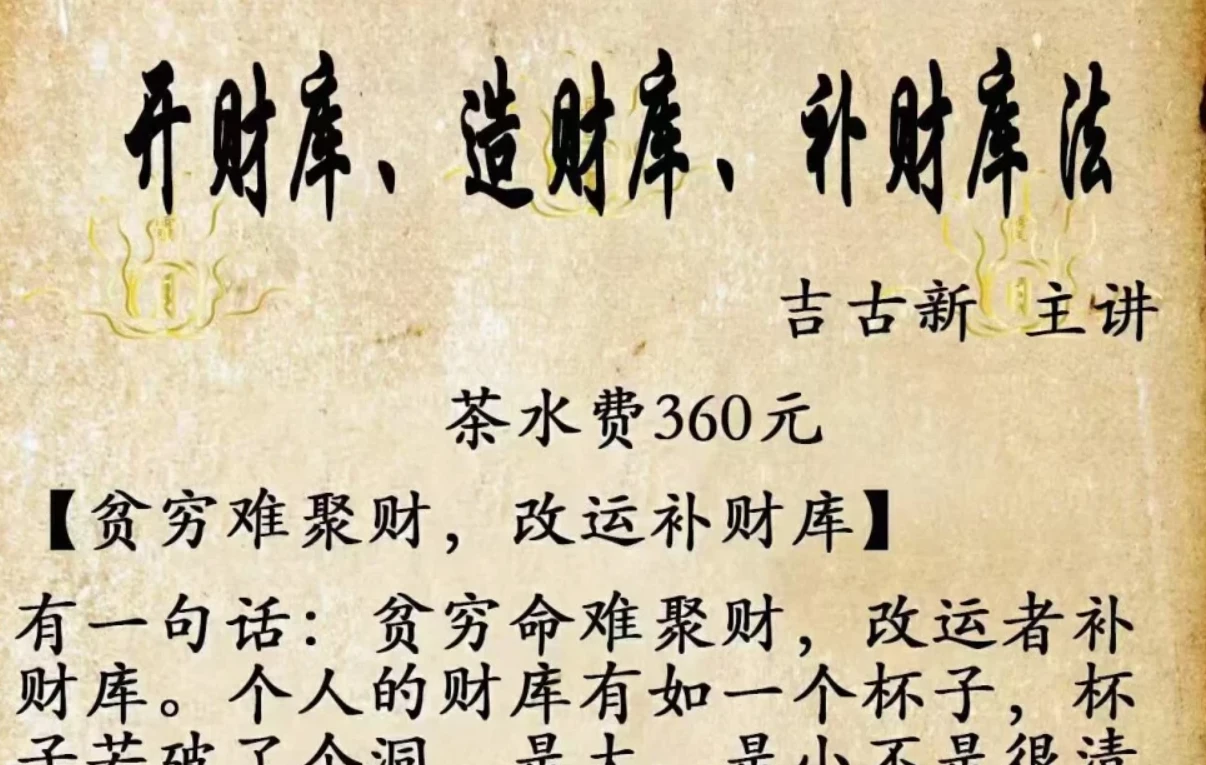 开财库、造财库、补财库法
吉古新 主讲
茶水费360元
【贫穷难聚财，改运补财库】
有一句话：贫穷命难聚财，改运者补
财库。个人的财库有如一个杯子，杯
子若破了个洞，是大、是小不是很清